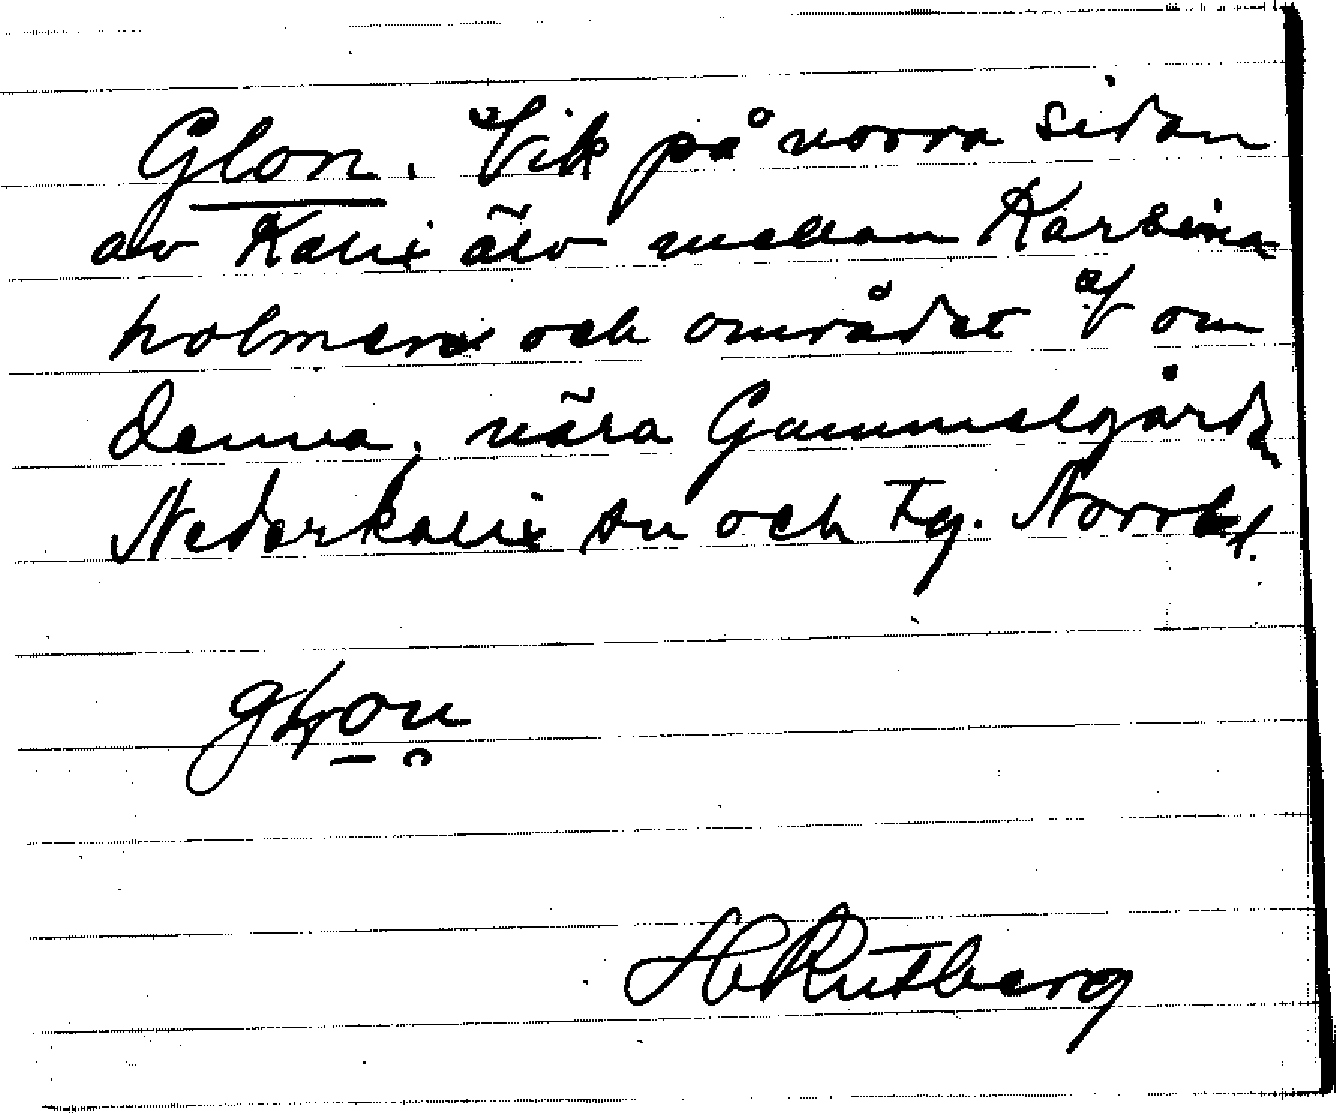 Glon. Vik på norra sidan
av Kalix älv mellan Karsina
holmen och området V om
denna, nära Gammelgården
Nederkalix sn och Tg. Norrbt.
glon
H Rutberg